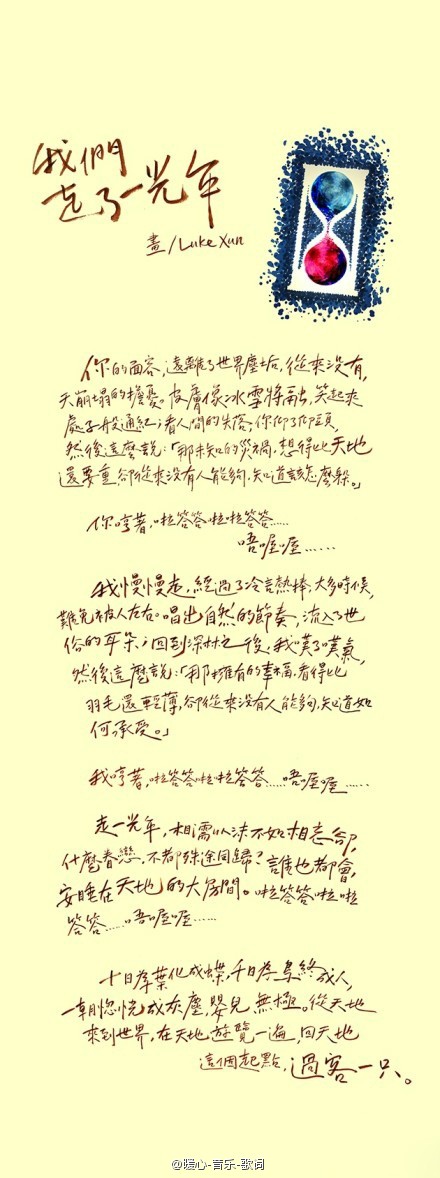 我們
走了一光年
畫/Luke Xun
你的面容，遠離了世界塵垢，從來沒有，
天崩塌的擔憂。皮膚像冰雪將融，笑起來
處子般通紅；看人間的失落，你仰了仰頭，
然後這麼說：「那未知的災禍，想得比天地
還要重，卻從來沒有人能夠，知道該怎麼躲。」
你哼著，啦答答啦啦答答……
唔喔喔……
我慢慢走，經過了冷言熱棒；大多時候，
難免被人左右。唱出自然的節奏，流入了世
俗的耳朵；回到深林之後，我嘆了嘆氣，
然後這麼說：「那擁有的幸福，看得比
羽毛還輕薄，卻從來沒有人能夠，知道如
何承受。」
我哼著，啦答答啦啦答答……唔喔喔……
走一光年，相濡以沫不如相忘卻，
什麼眷戀，不都殊途同歸？誰也都會，
安睡在天地的大房間。啦答答啦啦
答答……唔喔喔……
十日孝葉化成蝶，千日孝鳥終成人，
一朝惚恍成灰塵，嬰兒無極。從天地
來到世界，在天地遊覽一遍，回天地
這個起點，過客一只。
@暖心-音乐-歌词